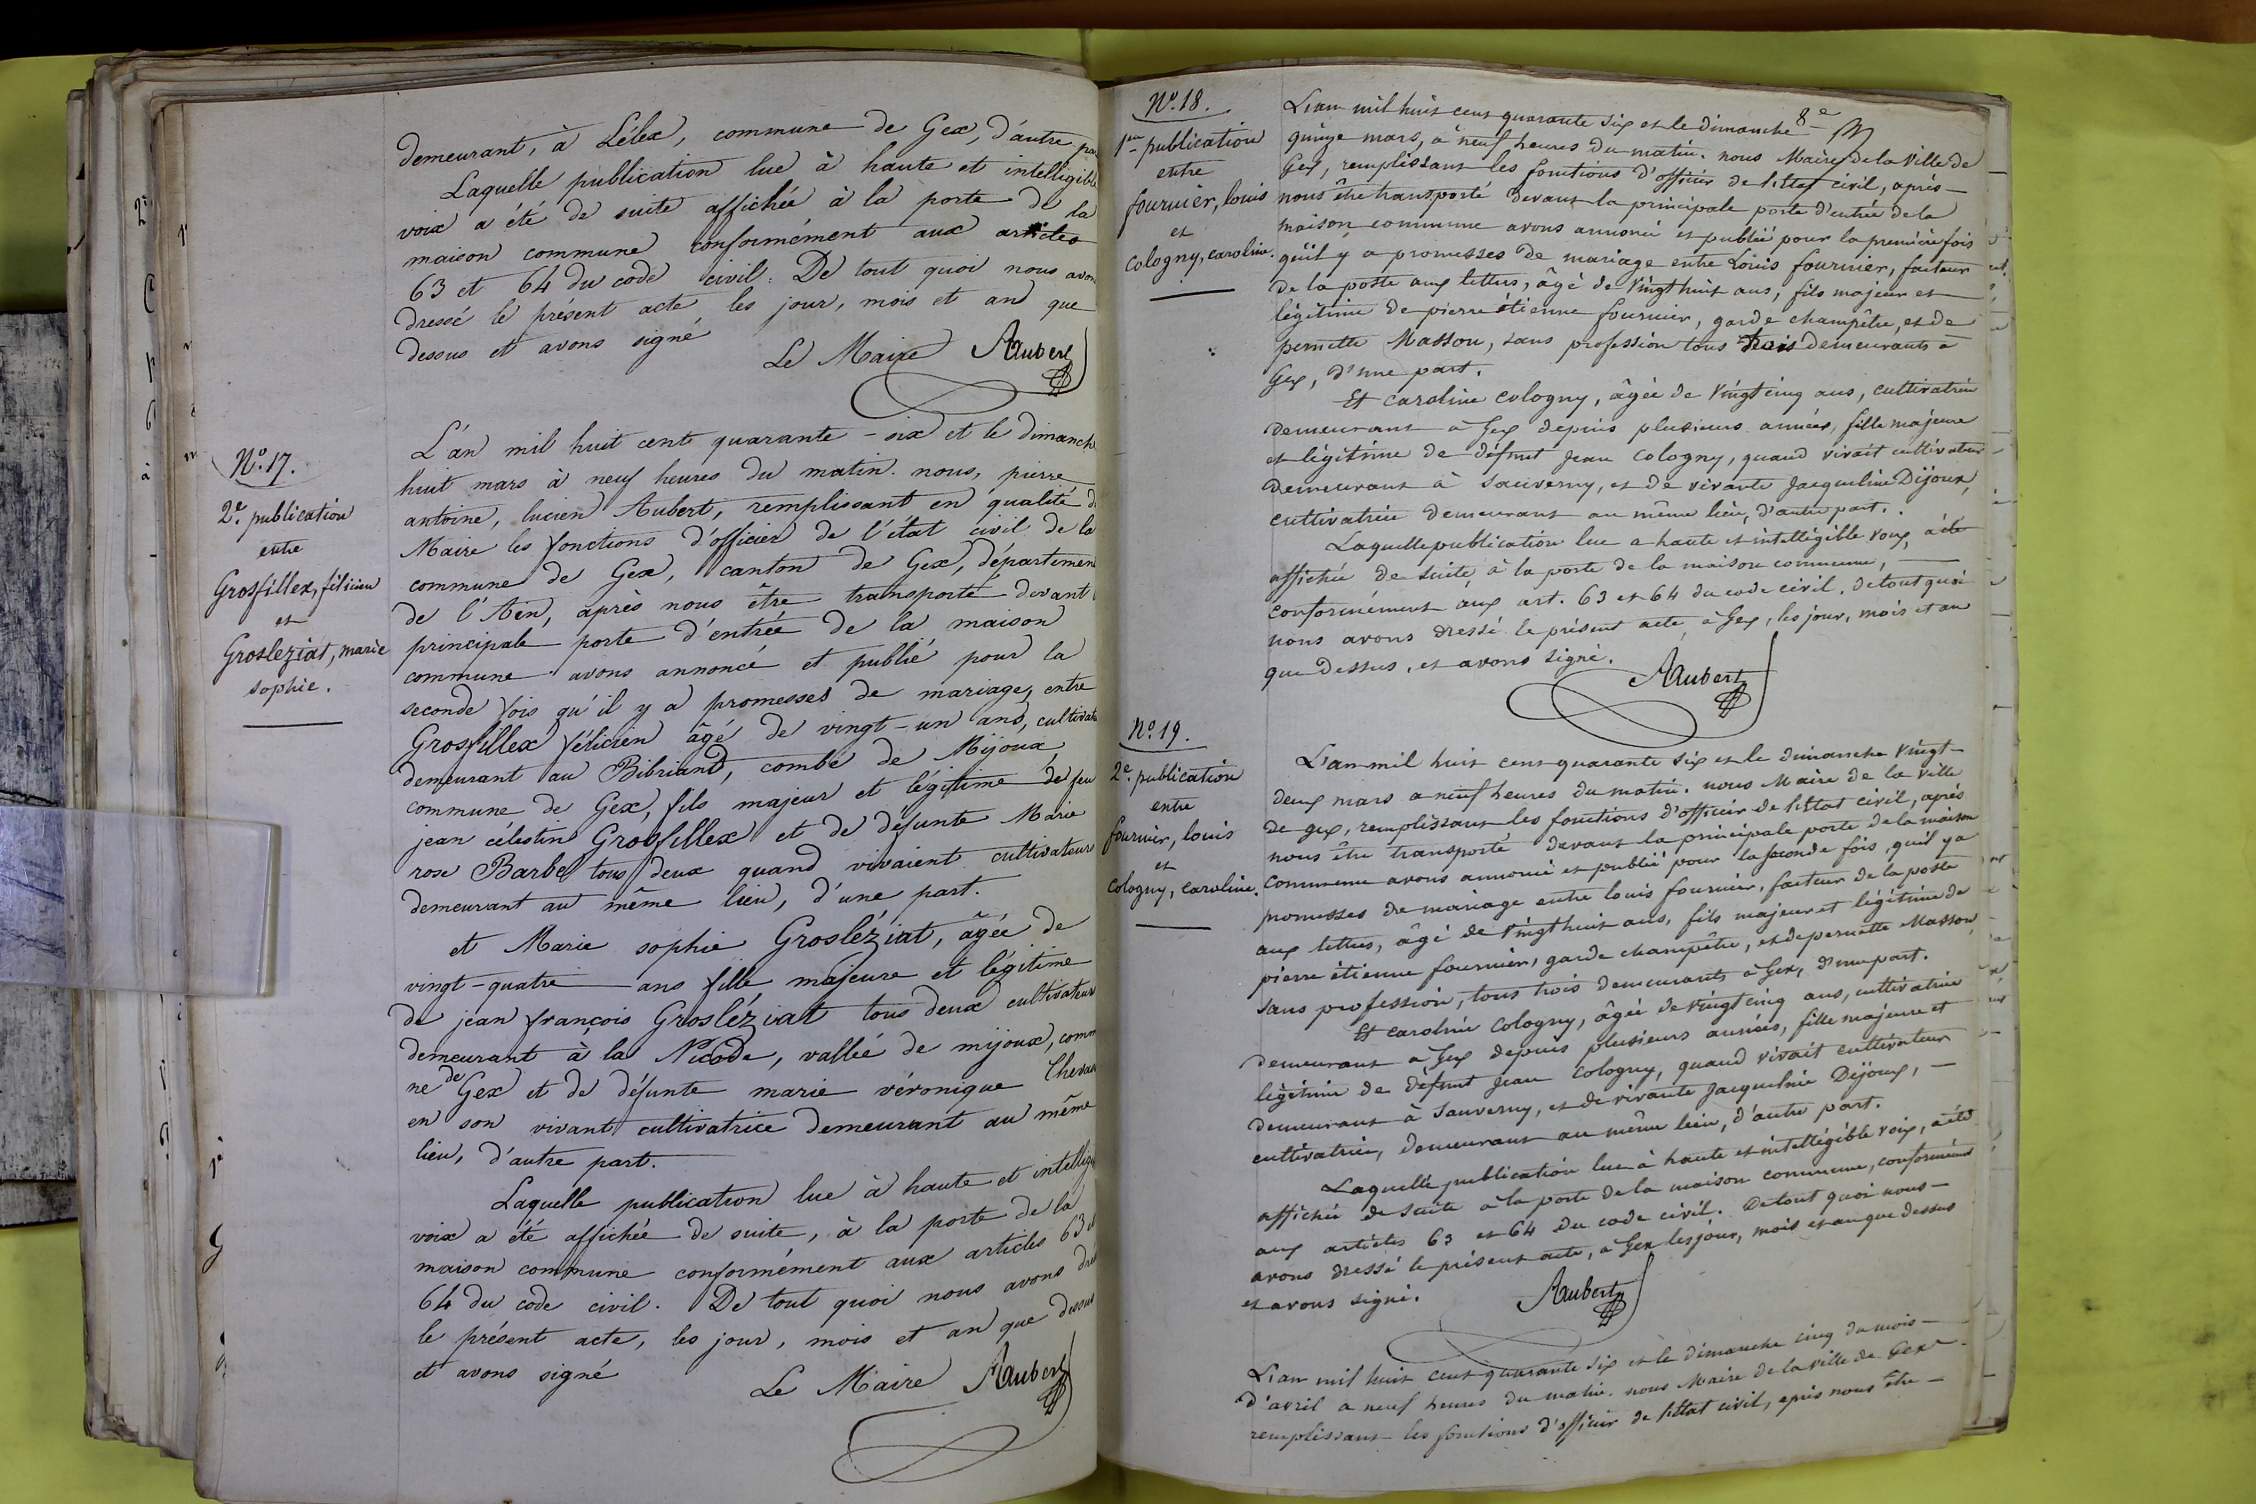 demeurant, à Lélex, commune de Gex, d'autre par
Laquelle publication lue à haute et intelligible
voix a été de suite affichée à la porte de la
maison commune conformément aux articles
63 et 64 du code civil. De tout quoi nous avons
dressé le présent acte, les jour, mois et an que
dessus et avons signé
Le Maire Aubert
No. 17.
2e. publication
entre
Grosfillex, félicien
et
Grosleziat, marie
sophie.
L'an mil huit cent quarante-six et le dimanche
huit mars à neuf heures du matin. nous, pierre
antoine, lucien Aubert, remplissant en qualité de
Maire les fonctions d'officier de l'état civil de la
commune de Gex, canton de Gex, département
de l'Ain, après nous être transporté devant
principale porte d'entrée de la maison
commune avons annoncé et publié pour la
seconde fois qu'il y a promesses de mariage, entre
Grosfillex félicien âgé de vingt-un ans, cultivate
demeurant au Bibriand, combe de Mijoux,
commune de Gex, fils majeur et légitime de feu
jean célestin Grosfillex et de défunte Marie
rose Barbe tous deux quand vivaient cultivateurs
demeurant au même lieu, d'une part.
et Marie sophie Grosléziat, âgée de
vingt-quatre ans fille majeure et légitime
de jean françois Grosléziat tous deux cultivateurs
demeurant à la Nicode, vallée de mijoux, comm
ne de Gex et de défunte marie véronique
en son vivant cultivatrice demeurant au même
lieu, d'autre part.
Laquelle publication lue à haute et intellig
voix a été affichée de suite, à la porte de la
maison commune conformément aux articles 63 et
64 du code civil. De tout quoi nous avons dre
le présent acte, les jour, mois et an que dessus
et avons signé
Le Maire Aubert
8e
No. 18.
1ere publication
entre
fournier, louis
et
cologny, caroline.
L'an mil huit cent quarante six et le dimanche
quinze mars, à neuf heures du matin. nous Maire de la Ville de
Gex, remplissant les fonctions d'officier de l'état civil, après
nous être transporté devant la principale porte d'entrée de la
maison commune avons annoncé et publié pour la première fois
qu'il y a promesses de mariage entre Louis fournier, facteur
de la poste aux lettres, âgé de Vingt huit ans, fils majeur et
légitime de pierre étienne fournier, garde champêtre, et de
pernette Masson, sans profession tous trois demeurants à
Gex, d'une part.
Et caroline cologny, âgée de Vingt cinq ans, cultivatrice
demeurant à Gex depuis plusieurs années, fille majeure
et légitime de défunt jean Cologny, quand vivait cultivateur
demeurant à Sauverny, et de vivante Jacqueline Dijoux,
cultivatrice demeurant au même lieu, d'autre part.
Laquelle publication lue a haute et intelligible voix, a été
affichée de suite à la porte de la maison commune,
conformément aux art. 63 et 64 du code civil. de tout quoi
nous avons dressé le présent acte, à Gex, les jour, mois et an
que dessus, et avons signé.
Aubert
No. 19.
2e. publication
entre
fournier, louis
et
Cologny, caroline.
L'an mil huit cent quarante six et le dimanche Vingt
deux mars a neuf heures du matin. nous Maire de la ville
de gex, remplissant les fonctions d'officier de l'état civil, après
nous être transporté devant la principale porte de la maison
commune avons annoncé et publié pour la seconde fois, qu'il y a
promesses de mariage entre louis fournier, facteur de la poste
aux lettres, âgé de Vingt huit ans, fils majeur et légitime de
pierre étienne fournier, garde champêtre, et de pernette Masson
sans profession, tous trois demeurants à Gex, d'une part.
Et caroline Cologny, âgée de Vingt cinq ans, cultivatrice
demeurant à Gex depuis plusieurs années, fille majeure et
légitime de défunt jean Cologny, quand vivait cultivateur
demeurant à Sauverny, et de vivante Jacqueline Dijoux,
cultivatrice, demeurant au même lieu, d'autre part.
Laquelle publication lue à haute et intelligible voix, a été
affichée de suite à la porte de la maison commune, conformément
aux articles 63 et 64 du code civil. De tout quoi nous
avons dressé le présent acte, à Gex les jour, mois et an que dessus
et avons signé.
Aubert
L'an mil huit cent quarante six et le dimanche cinq du mois
d'avril a neuf heures du matin. nous Maire de la ville de Gex
remplissant les fonctions d'officier de l'état civil, après nous être